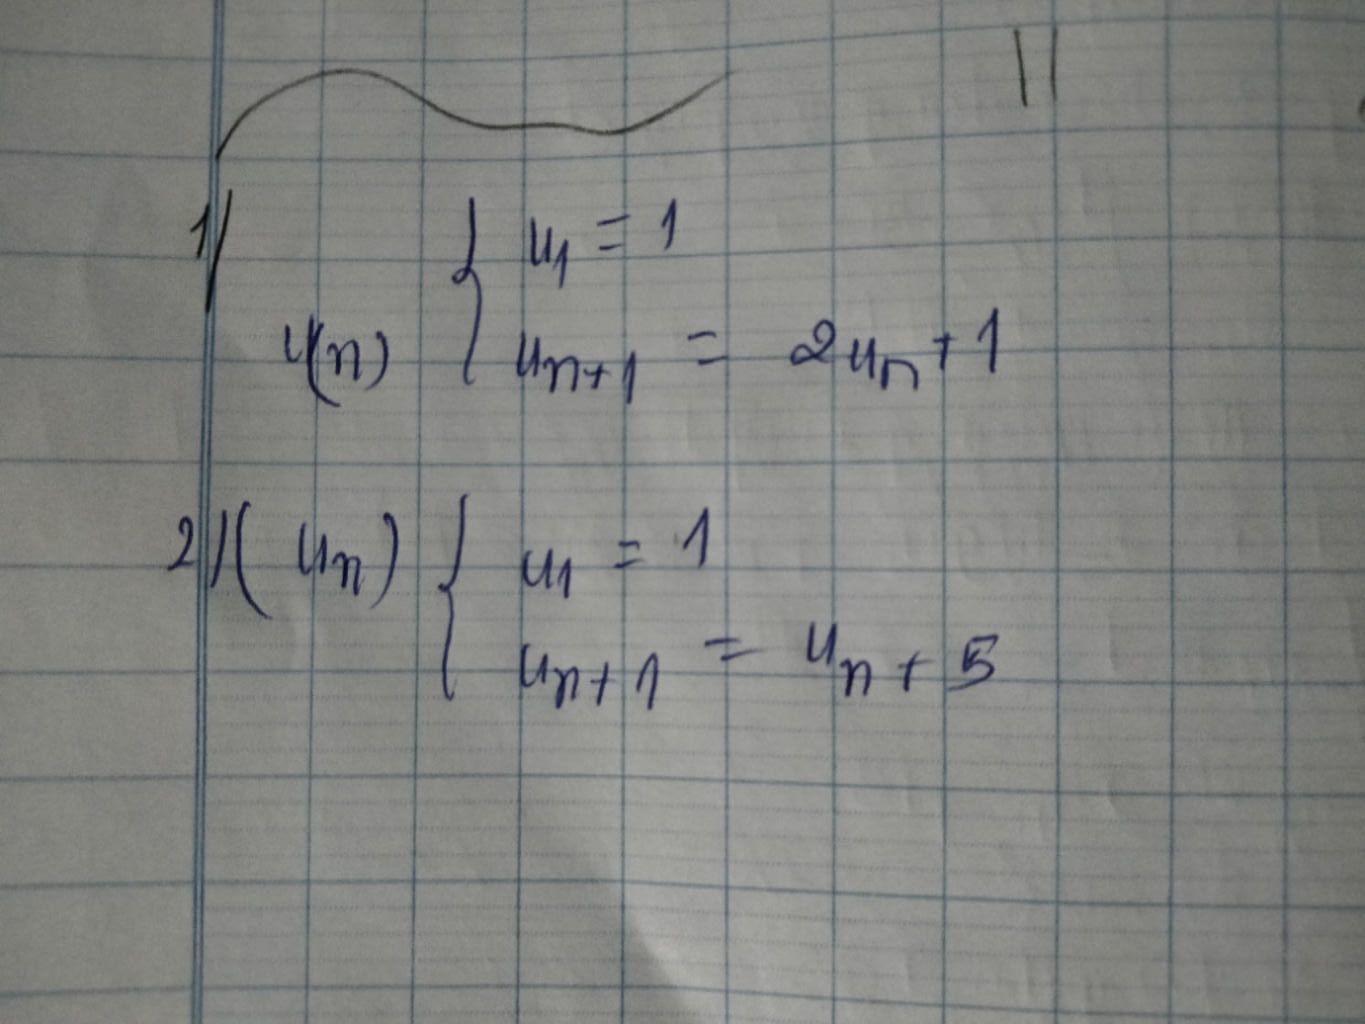 1/
{ u₁ = 1
u(n) { uₙ₊₁ = 2uₙ + 1
2/ (uₙ) { u₁ = 1
uₙ₊₁ = uₙ + 5